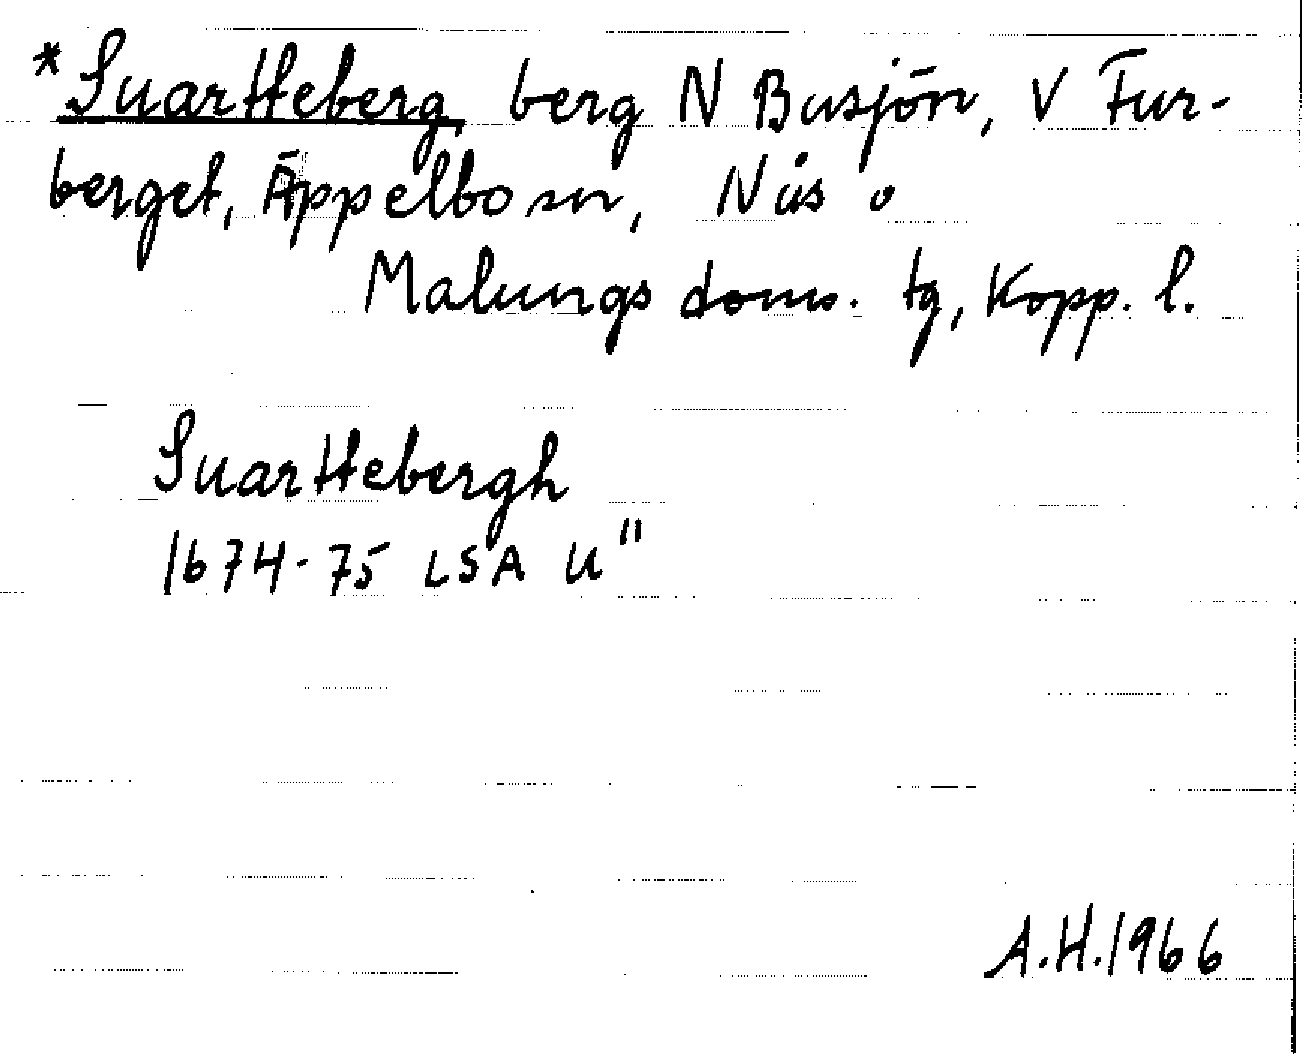 *Suartteberg, berg N Busjön, V Fur-
berget, Äppelbo sn, Nås o
Malungs doms. tg, Kopp. l.
Suarttebergh
1674-75 LSA U"
A.H.1966